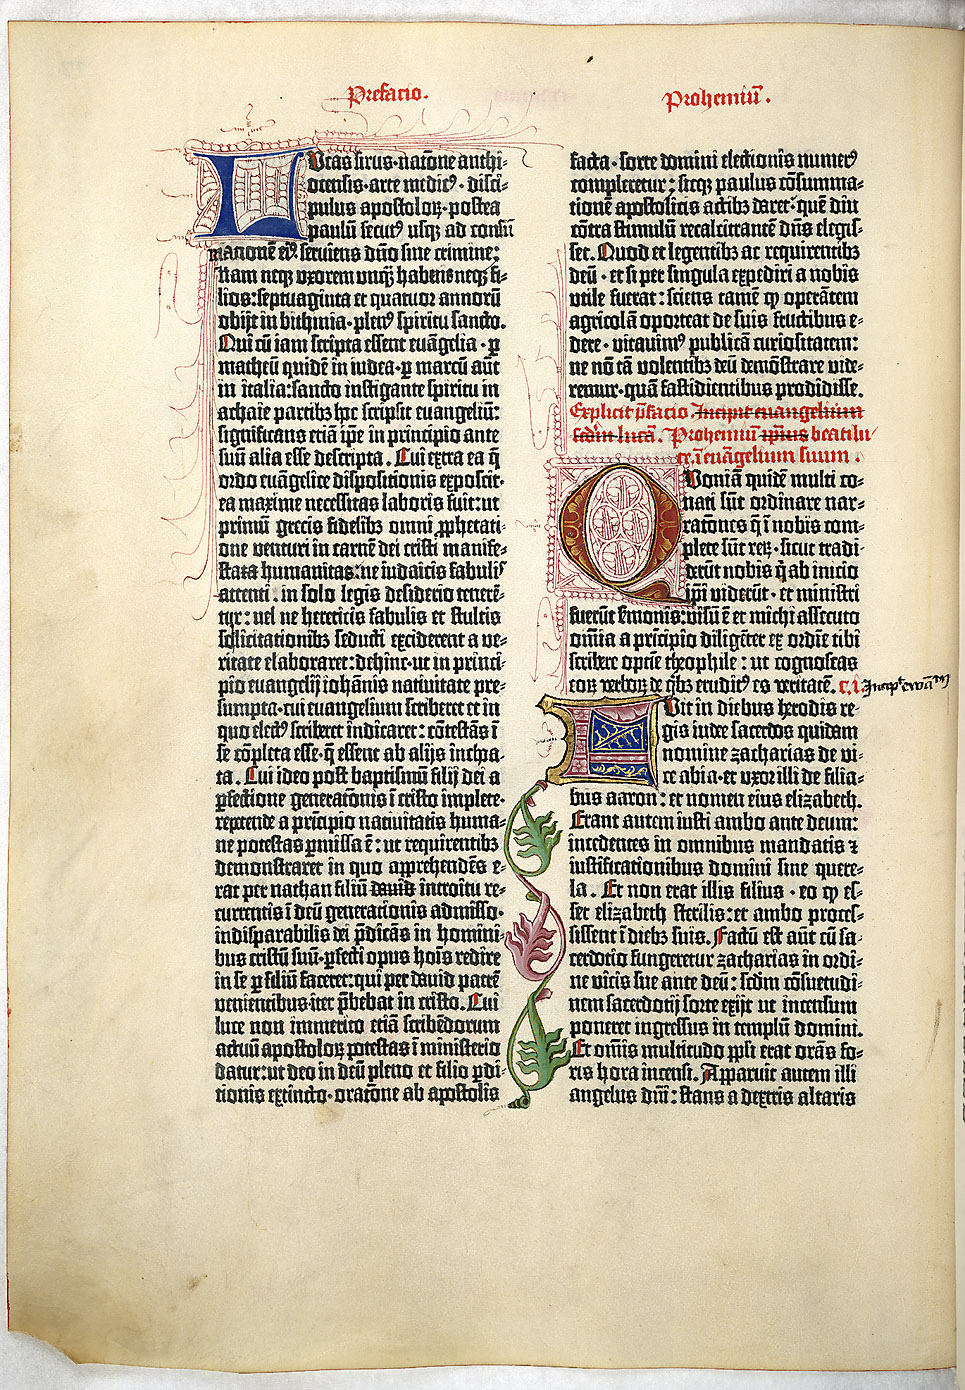 Prefacio.
Prohemiū.
Lucas sirus· natōne anthi-
ocensis· arte medicꝰ· disci-
pulus apostoloꝝ· postea
paulū secutꝰ usqꝫ ad confū
mationē eiꝰ serviens dn̄o sine crimine:
Nam neqꝫ uxorem unqꝫ̄ habens neqꝫ fi-
lios: septuaginta et quatuor annorū
obijt in bithinia· plenꝰ spiritu sancto.
Qui cū iam scripta essent euāgelia· ꝑ
matheū quidē in iudea· ꝑ marcū aūt
in italia: sancto instigante spiritu in
achaie partibꝫ hoc scripsit euangeliū:
significans etiā ip̄e in principio ante
suū alia esse descripta. Cui extra ea q̄
ordo euāgelice dispositionis exposcit·
ea maxime necessitas laboris fuit: ut
primū grecis fidelibꝫ omni ꝓphetati-
one venturi in carnē dei cristi manife-
stata humanitas: ne iudaicis fabulis
attenti· in solo legis desiderio tenerē-
tur: vel ne hereticis fabulis et stultis
sollicitationibꝫ seducti exciderent a ve-
ritate elaboraret: dehinc· ut in princi-
pio euangelij iohānis natiuitate pre-
sumpta· cui euangelium scriberet et in
quo electꝰ scriberet indicaret: cōtestās ī
se cōpleta esse· q̄ essent ab alijs inchoa-
ta. Cui ideo post baptismū filij dei a
ꝑfectione generatōnis ī cristo implete·
repetende a prīcipio natiuitatis huma-
ne potestas ꝑmissa ē: ut requirentibꝫ
demonstraret in quo apprehendēs e-
rat per nathan filiū dauid introitu re-
currentis ī deū generationis admisso·
indisparabilis dei p̄dicās in homini-
bus cristū suū· ꝑfecti opus hoīs redire
in se ꝑ filiū faceret: qui per dauid patrē
venientibus iter p̄bebat in cristo. Cui
luce non immerito etiā scribēdorum
actuū apostoloꝝ potestas ī ministerio
datur: ut deo in deū pleno et filio ꝑdi-
tionis extincto· oratōne ab apostolis
facta· sorte domini electionis numerꝰ
completetur: sicqꝫ paulus cōsumma-
tionē apostolicis actibꝫ daret· quē diu
cōtra stimulū recalcitrantē dn̄s elegis-
set. Quod et legentibꝫ ac requirentibꝫ
deū· et si per singula expediri a nobis
utile fuerat: sciens tamē ꝙ operātem
agricolā oporteat de suis fructibus e-
dere· vitauimꝰ publicā curiositatem:
ne nō tā volentibꝫ deū demōstrare vide-
remur· quā fastidientibus prodidisse.
Explicit p̄facio Incipit euangelium
scd̄m lucā. Prohemiū ip̄ius beati lu-
ce ī euāgelium suum.
Quoniā quidē multi co-
nati sūt ordinare nar-
ratōnes q̄ ī nobis com-
plete sūt reꝝ· sicut tradi-
derūt nobis q̄ ab inicio
ip̄i viderūt· et ministri
fuerūt s̄monis: visū ē et michi assecuto
om̄ia a prīcipio diligēter ex ordīe tibi
scribere optīe theophile: ut cognoscas
eoꝝ verboꝝ de qͥbꝫ eruditꝰ es veritatē. c.i. Incipͭ evāᵐ
Fuit in diebus herodis re-
gis iudee sacerdos quidam
nomine zacharias de vi-
ce abia· et uxor illi de filia-
bus aaron: et nomen eius elizabeth.
Erant autem iusti ambo ante deum:
incedentes in omnibus mandatis ⁊
iustificationibus domini sine quere-
la. Et non erat illis filius· eo ꝙ es-
set elizabeth sterilis: et ambo proces-
sissent ī diebꝫ suis. Factū est aūt cū sa-
cerdotio fungeretur zacharias in ordi-
ne vicis sue ante deū: scdm cōsuetudi-
nem sacerdotij sorte exijt ut incensum
poneret ingressus in templū domini.
Et om̄is multitudo ppl̄i erat orās fo-
ris hora incensi. Apparuit autem illi
angelus dn̄i: stans a dextris altaris